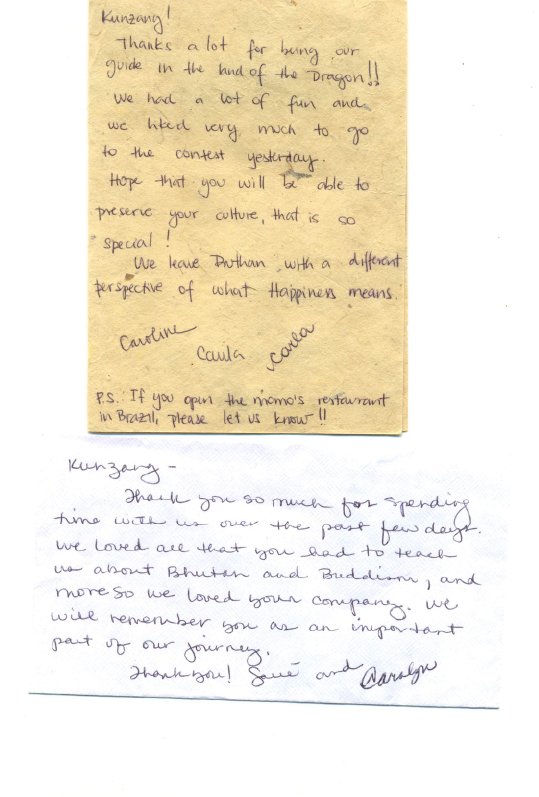 Kunzang!
Thanks a lot for being our
guide in the land of the Dragon!!
We had a lot of fun and
we liked very much to go
to the contest yesterday.
Hope that you will be able to
preserve your culture, that is so
special!
We leave Buthan with a different
perspective of what Happiness means.
Caroline
Camila Carla
P.S. If you open the momo's restaurant
in Brazil, please let us know!!
Kunzang -
Thank you so much for spending
time with us over the past few days.
We loved all that you had to teach
us about Bhutan and Buddism, and
more so we loved your company. We
will remember you as an important
part of our journey.
Thank you! and Carolyn